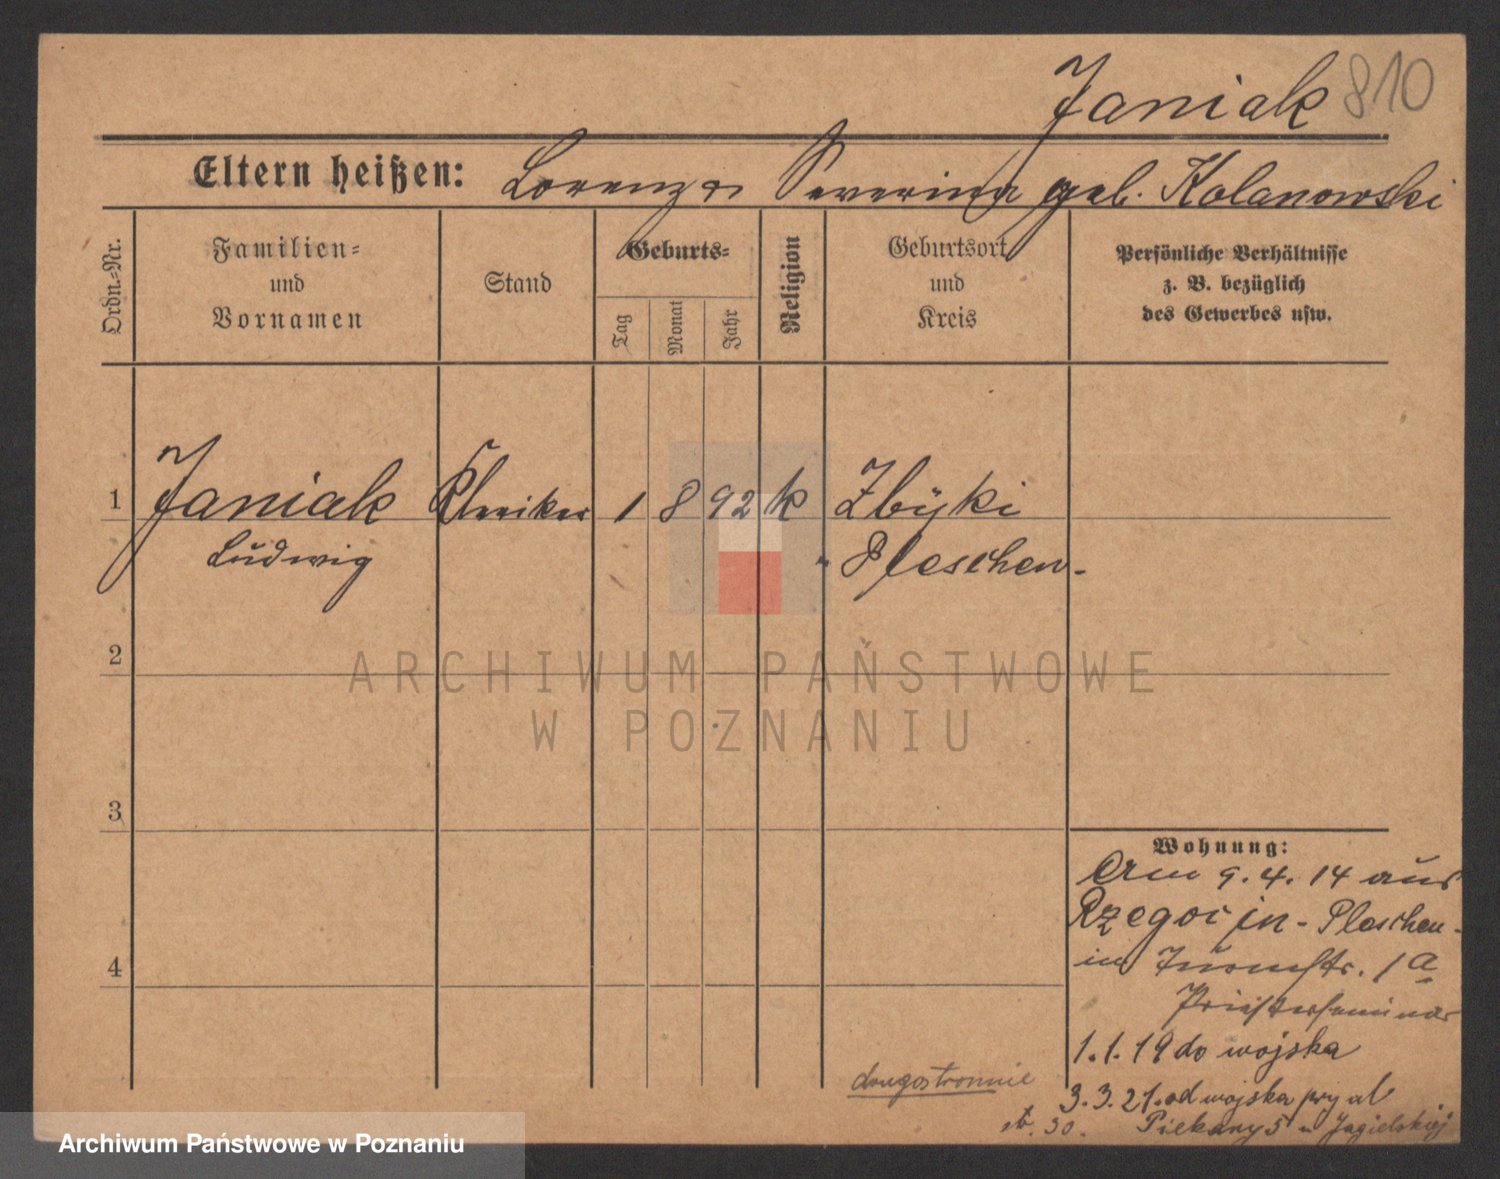 Janiak 810
Eltern heißen: Lorenz u Severina geb. Kolanowski
Ordn.-Nr.
Familien-
und
Vornamen
Stand
Geburts-
Tag
Monat
Jahr
Religion
Geburtsort
und
Kreis
Persönliche Verhältnisse
z. B. bezüglich
des Gewerbes usw.
1 Janiak Kleriker 1 8 92 k Zbyki
Ludwig Pleschen-
2
ARCHIWUM PAŃSTWOWE
W POZNANIU
3
4
Wohnung:
Am 9. 4. 14 aus
Pleschen-
in 1a
Priesterseminar
1.1.19 do wojska
3.3.21. od wojska
Piekary 5 Jagielskiej
drugostronnie
Archiwum Państwowe w Poznaniu